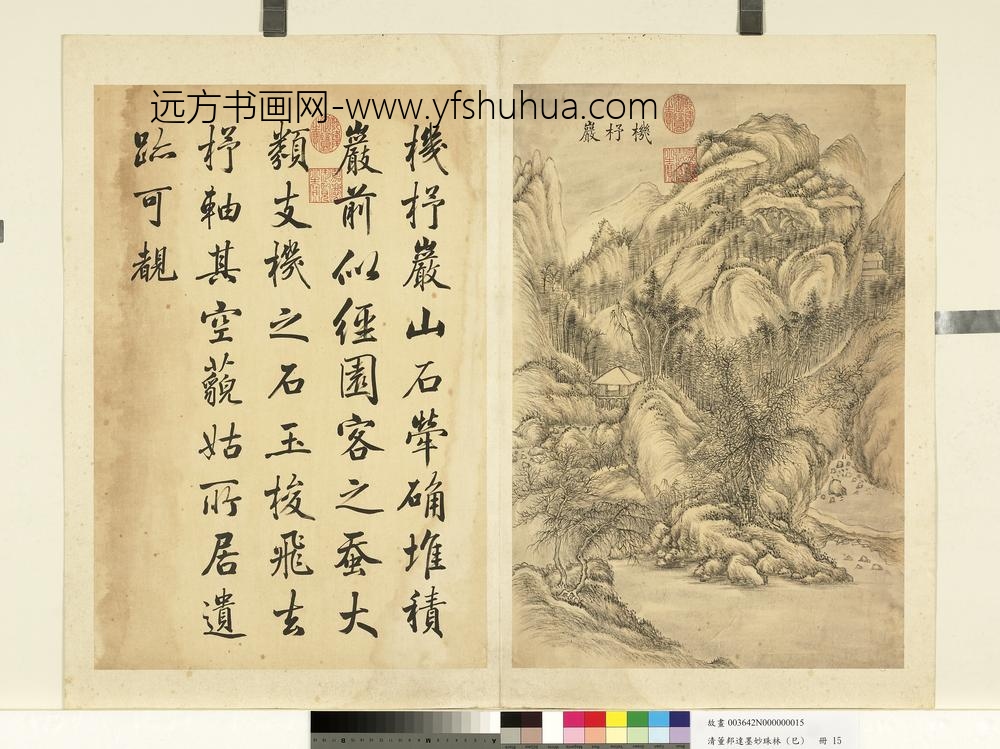 远方书画网-www.yfshuhua.com
機杼巖
機杼巖山石犖确堆積
巖前似經園客之蚕大
類支機之石玉梭飛去
杼軸其空藐姑所居遺
跡可覩
故畫 003642N000000015
清董邦達墨妙珠林（巳） 冊 15